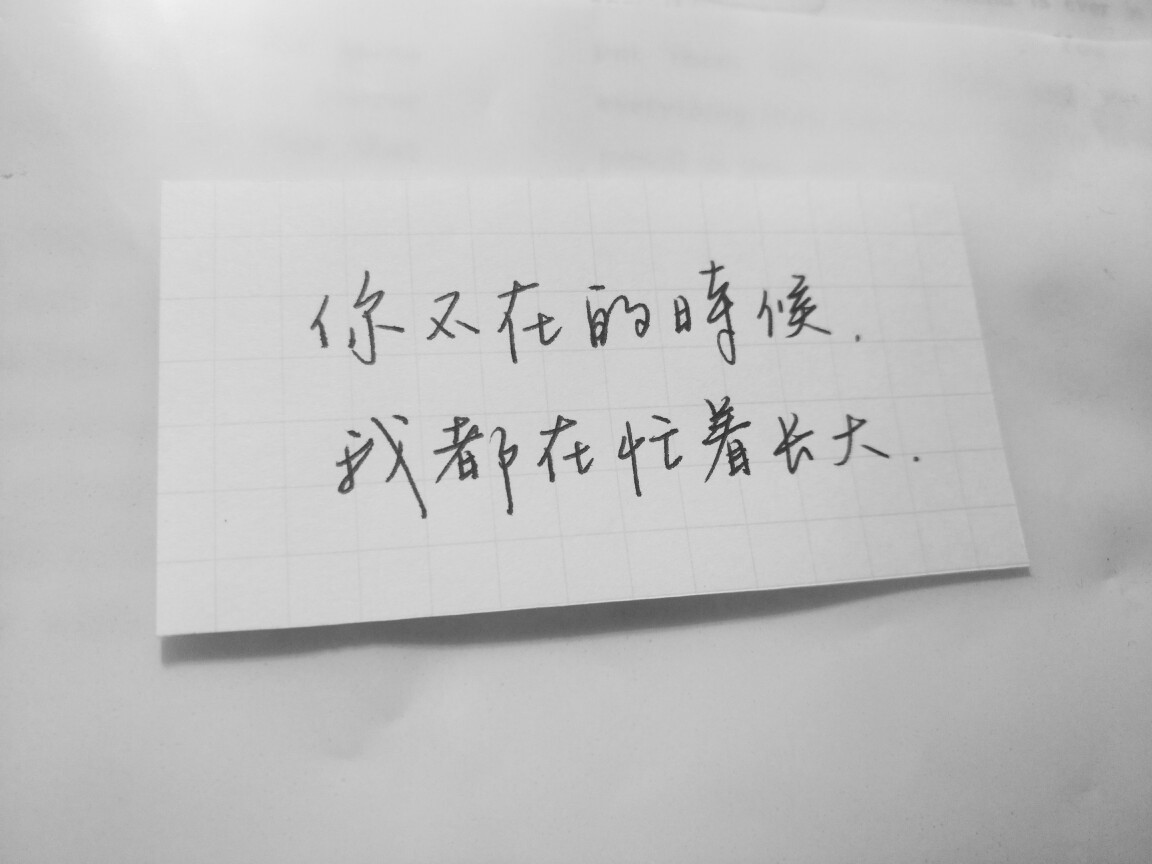 你不在的時候.
我都在忙着长大.